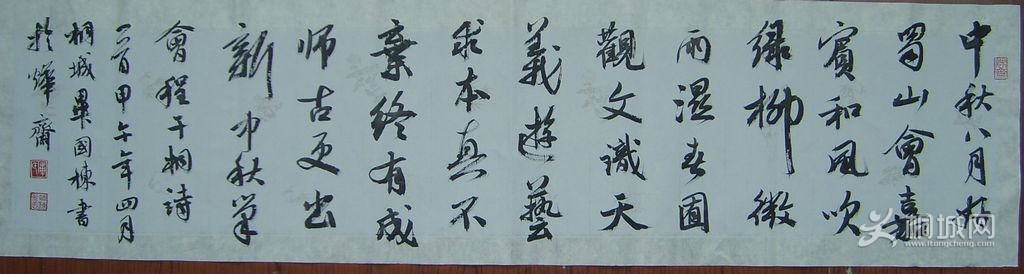 中秋八月於
蜀山會嘉
賓和風吹
绿柳微
雨濕春圃
觀文識天
義遊藝
求本真不
棄终有成
师古更出
新 中秋筆
會程于桐詩
一首甲午年四月
桐城畢國棟書
於燁齋
桐城网
www.itongcheng.com